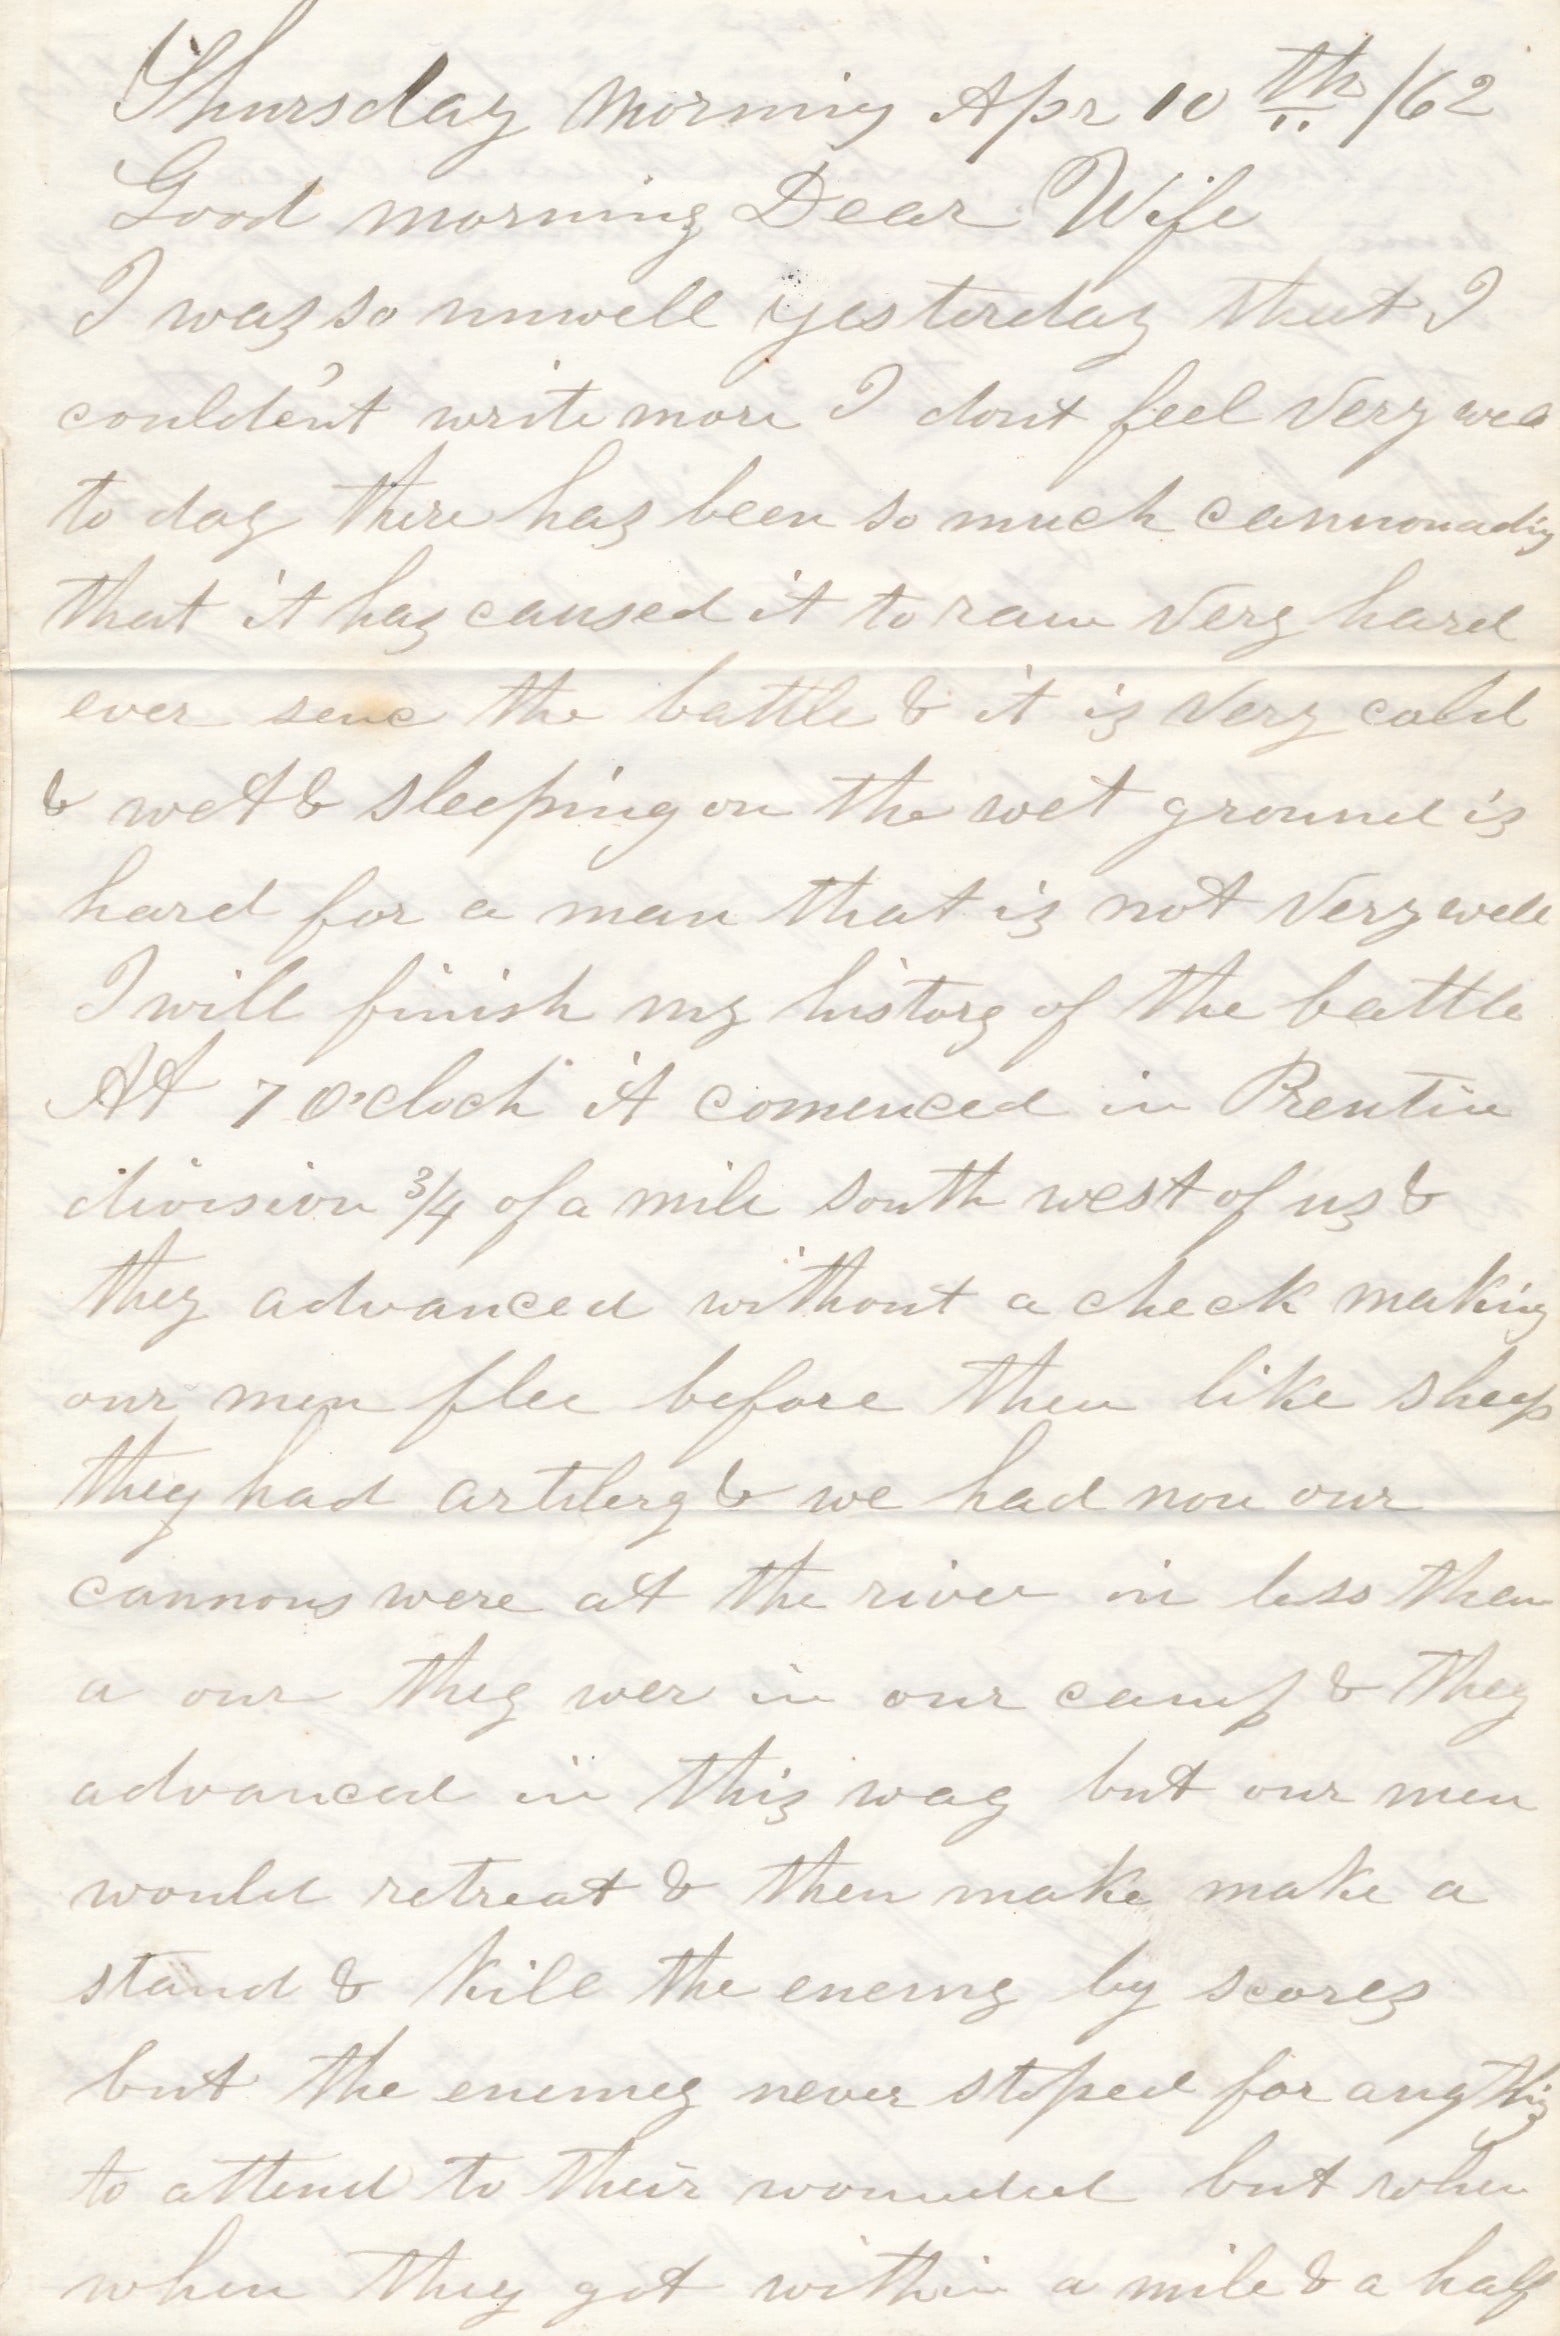 Thursday morning Apr 10th /62
Good morning Dear Wife
I was so unwell yesterday that I
couldent write more I dont feel very well
to day there has been so much cannonadig
that it has caused it to rain very hard
ever senc the battle & it is very cold
& wet & sleeping on the wet ground is
hard for a man that is not very well
I will finish my history of the battle
At 7 O'clock it comenced in Prentice
division 3/4 of a mile south west of us &
they advanced without a check making
our men flee before them like sheep
they had artilery & we had non our
cannons were at the river in less then
a our they wer in our camp & they
advanced in this way but our men
would retreat & then make make a
stand & kill the enemy by scores
but the enemey never stoped for anything
to attend to their wounded but when
when they got within a mile & a half